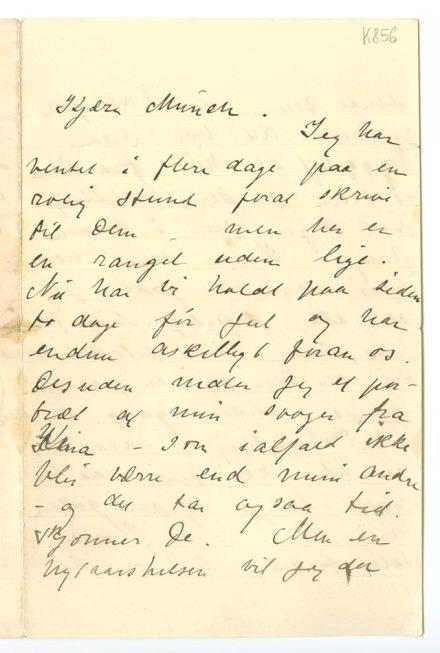 K856
Kjære Munch.
Jeg har
ventet i flere dage paa en
rolig stund forat skrive
til Dem – men her er
en rangel uden lige.
Nu har vi holdt paa siden
to dage før jul og har
endnu adskilligt foran os.
Desuden maler jeg et por-
træt af min svoger fra
Kina – som ialfald ikke
blir værre end mine andre
– og det tar ogsaa tid.
skjønner De. Men en
nytaarshilsen vil jeg da